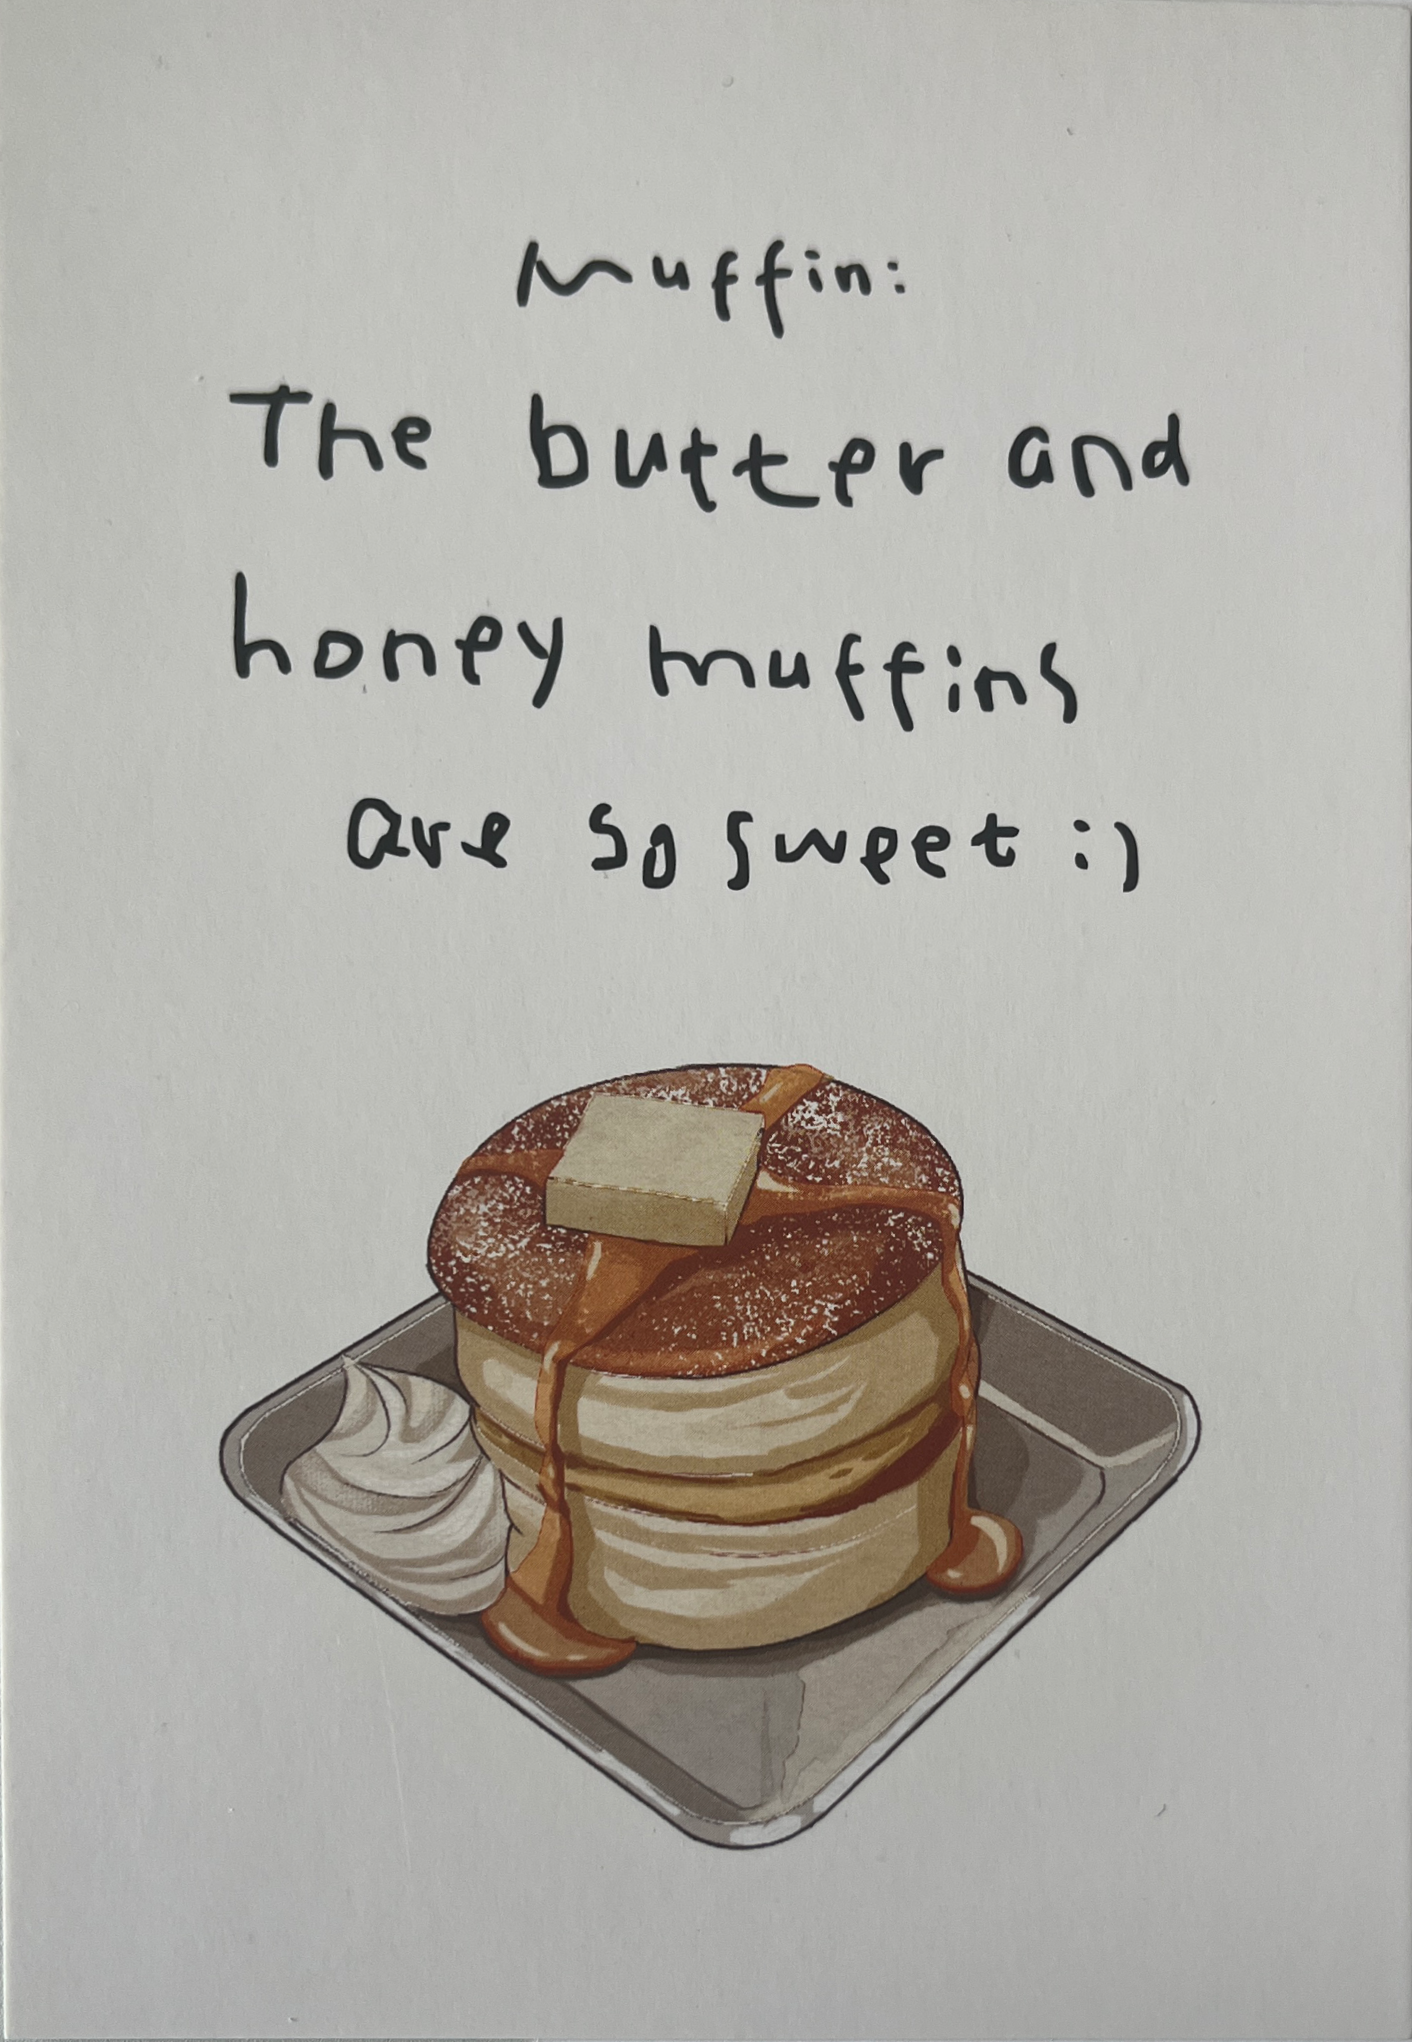 Muffin:
The butter and
honey muffins
are so sweet :)